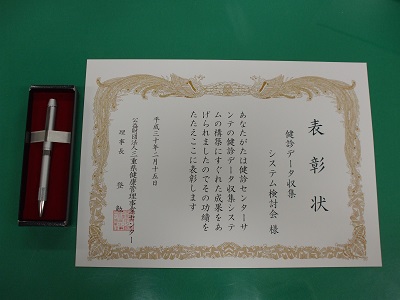 表彰状
健診データ収集
システム検討会 様
あなたがたは健診センターサ
ンテの健診データ収集システ
ムの構築にすぐれた成果をあ
げられましたのでその功績を
たたえここに表彰します
平成三十年二月十五日
公益財団法人三重県健康管理事業センター
理事長